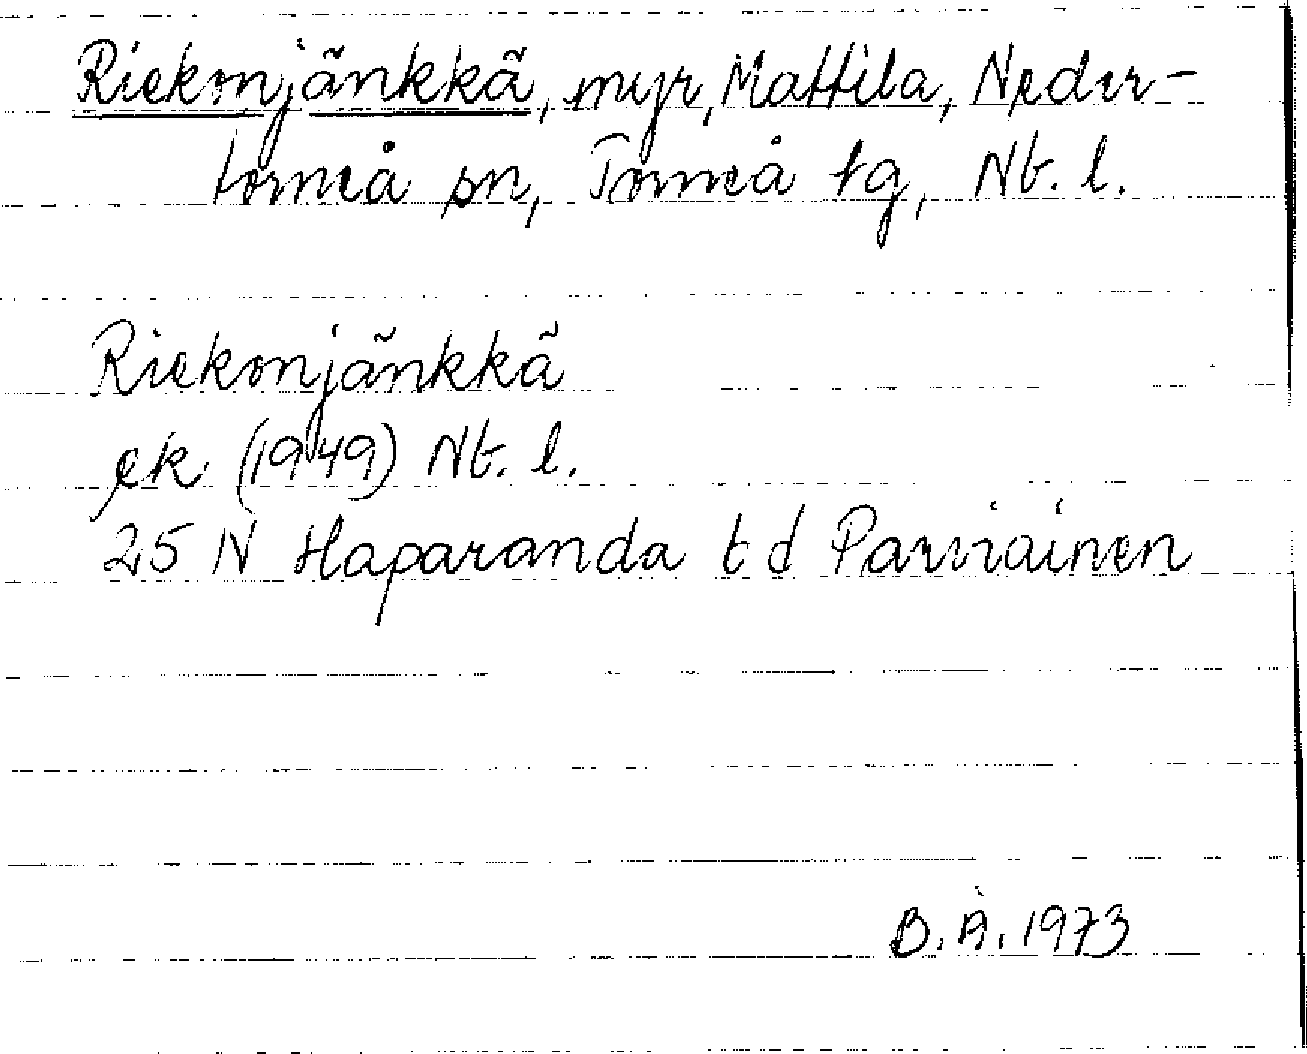 Riekonjänkkä, myr, Mattila, Neder-
torneå sn, Torneå tg, Nb. l.
Riekonjänkkä
ek (1949) Nb. l.
25 N Haparanda t d Parviainen
B. Å. 1973